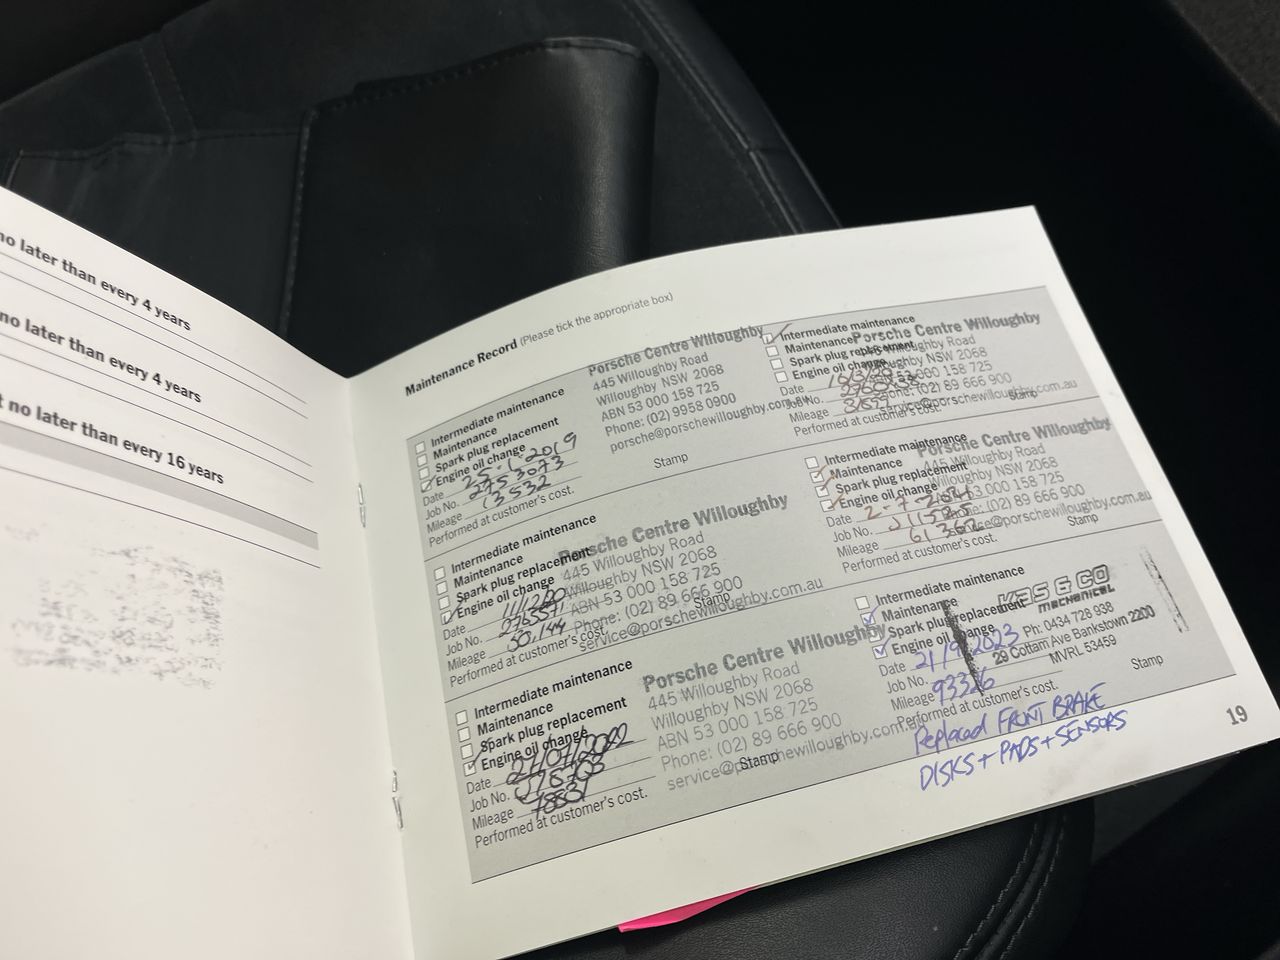 no later than every 4 years
no later than every 4 years
t no later than every 16 years
Maintenance Record (Please tick the appropriate box)
Intermediate maintenance
Maintenance
Spark plug replacement
Engine oil change
Date 25-1-2019
Job No. 2753073
Mileage 13532
Performed at customer's cost.
Porsche Centre Willoughby
445 Willoughby Road
Willoughby NSW 2068
ABN 53 000 158 725
Phone: (02) 9958 0900
porsche@porschewilloughby.com.au
Stamp
Intermediate maintenance
Maintenance
Spark plug replacement
Engine oil change
Date
Job No.
Mileage 30,144
Performed at customer's cost.
Porsche Centre Willoughby
445 Willoughby Road
Willoughby NSW 2068
ABN 53 000 158 725
Phone: (02) 89 666 900
service@porschewilloughby.com.au
Stamp
Intermediate maintenance
Maintenance
Spark plug replacement
Engine oil change
Date 27/07/2022
Job No.
Mileage
Performed at customer's cost.
Porsche Centre Willoughby
445 Willoughby Road
Willoughby NSW 2068
ABN 53 000 158 725
Phone: (02) 89 666 900
service@porschewilloughby.com.au
Stamp
Intermediate maintenance
Maintenance
Spark plug replacement
Engine oil change
Date
Job No.
Mileage
Performed at customer's cost.
Porsche Centre Willoughby
445 Willoughby Road
Willoughby NSW 2068
53 000 158 725
Phone: (02) 89 666 900
service@porschewilloughby.com.au
Stamp
Intermediate maintenance
Maintenance
Spark plug replacement
Engine oil change
Date 2-7-2021
Job No.
Mileage 61362
Performed at customer's cost.
Porsche Centre Willoughby
445 Willoughby Road
Willoughby NSW 2068
53 000 158 725
Phone: (02) 89 666 900
service@porschewilloughby.com.au
Stamp
Intermediate maintenance
Maintenance
Spark plug replacement
Engine oil change
Date 21/9/2023
Job No.
Mileage 93326
Performed at customer's cost.
KAS & CO
MECHANICAL
Ph: 0434 728 938
29 Cottam Ave Bankstown 2200
MVRL 53459
Stamp
Replaced FRONT BRAKE
DISKS + PADS + SENSORS
19